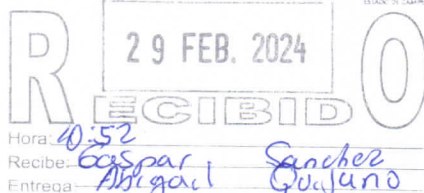 29 FEB. 2024
RECIBIDO
Hora: 10:52
Recibe: Gaspar Sanchez
Entrega Abigail Quijano